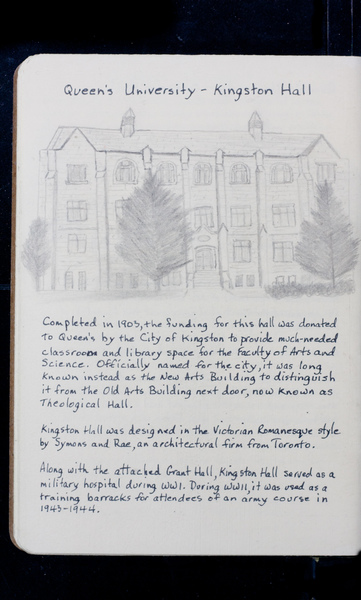 Queen's University - Kingston Hall
Completed in 1903, the funding for this hall was donated
to Queen's by the City of Kingston to provide much-needed
classroom and library space for the Faculty of Arts and
Science. Officially named for the city, it was long
known instead as the New Arts Building to distinguish
it from the Old Arts Building next door, now known as
Theological Hall.
Kingston Hall was designed in the Victorian Romanesque style
by Symons and Rae, an architectural firm from Toronto.
Along with the attached Grant Hall, Kingston Hall served as a
military hospital during WWI. During WWII, it was used as a
training barracks for attendees of an army course in
1943-1944.